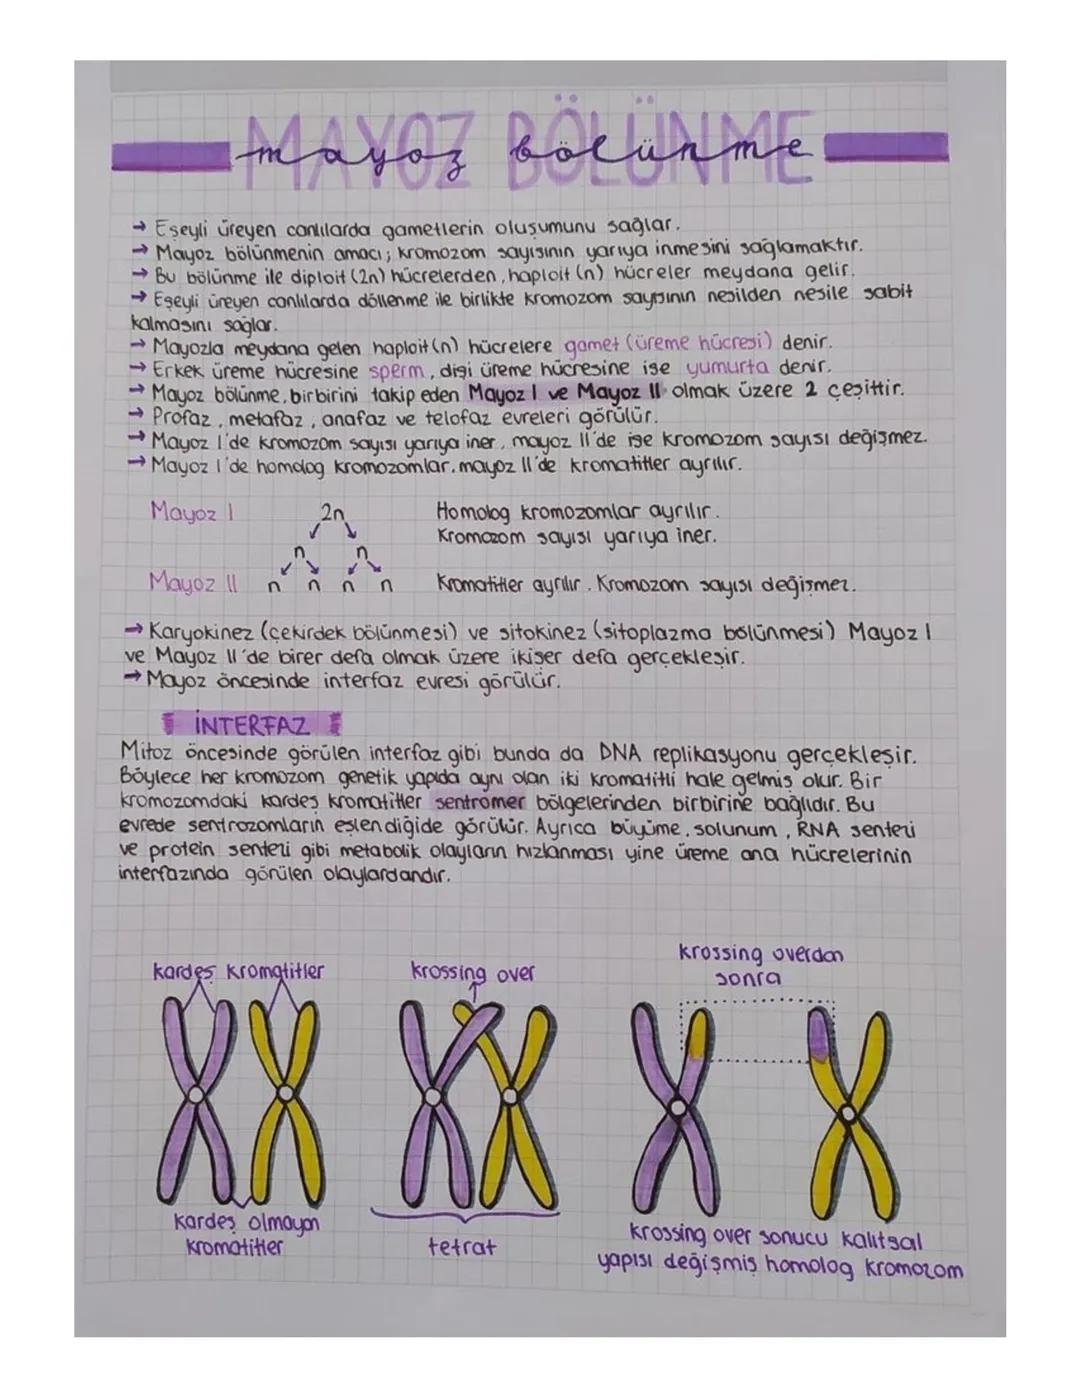 MAYOZ BÖLÜNME
mayoz bölünme
→ Eşeyli üreyen canlılarda gametlerin oluşumunu sağlar.
→ Mayoz bölünmenin amacı; kromozom sayısının yarıya inmesini sağlamaktır.
→ Bu bölünme ile diploit (2n) hücrelerden, haploit (n) hücreler meydana gelir.
→ Eşeyli üreyen canlılarda döllenme ile birlikte kromozom sayısının nesilden nesile sabit
kalmasını sağlar.
→ Mayozla meydana gelen haploit (n) hücrelere gamet (üreme hücresi) denir.
→ Erkek üreme hücresine sperm, dişi üreme hücresine ise yumurta denir.
→ Mayoz bölünme, birbirini takip eden Mayoz I ve Mayoz II olmak üzere 2 çeşittir.
→ Profaz, metafaz, anafaz ve telofaz evreleri görülür.
→ Mayoz I'de kromozom sayısı yarıya iner, mayoz II'de ise kromozom sayısı değişmez.
→ Mayoz I'de homolog kromozomlar, mayoz II'de kromatitler ayrılır.
Mayoz I 2n Homolog kromozomlar ayrılır.
Kromozom sayısı yarıya iner.
n n
Mayoz II n n n n Kromatitler ayrılır. Kromozom sayısı değişmez.
→ Karyokinez (çekirdek bölünmesi) ve sitokinez (sitoplazma bölünmesi) Mayoz I
ve Mayoz II'de birer defa olmak üzere ikişer defa gerçekleşir.
→ Mayoz öncesinde interfaz evresi görülür.
İNTERFAZ
Mitoz öncesinde görülen interfaz gibi bunda da DNA replikasyonu gerçekleşir.
Böylece her kromozom genetik yapıda aynı olan iki kromatitli hale gelmiş olur. Bir
kromozomdaki kardeş kromatitler sentromer bölgelerinden birbirine bağlıdır. Bu
evrede sentrozomların eşlendiğide görülür. Ayrıca büyüme, solunum, RNA sentezi
ve protein sentezi gibi metabolik olayların hızlanması yine üreme ana hücrelerinin
interfazında görülen olaylardandır.
kardeş kromatitler
krossing over
krossing overdan
sonra
kardeş olmayan
kromatitler
tetrat
krossing over sonucu kalıtsal
yapısı değişmiş homolog kromozom